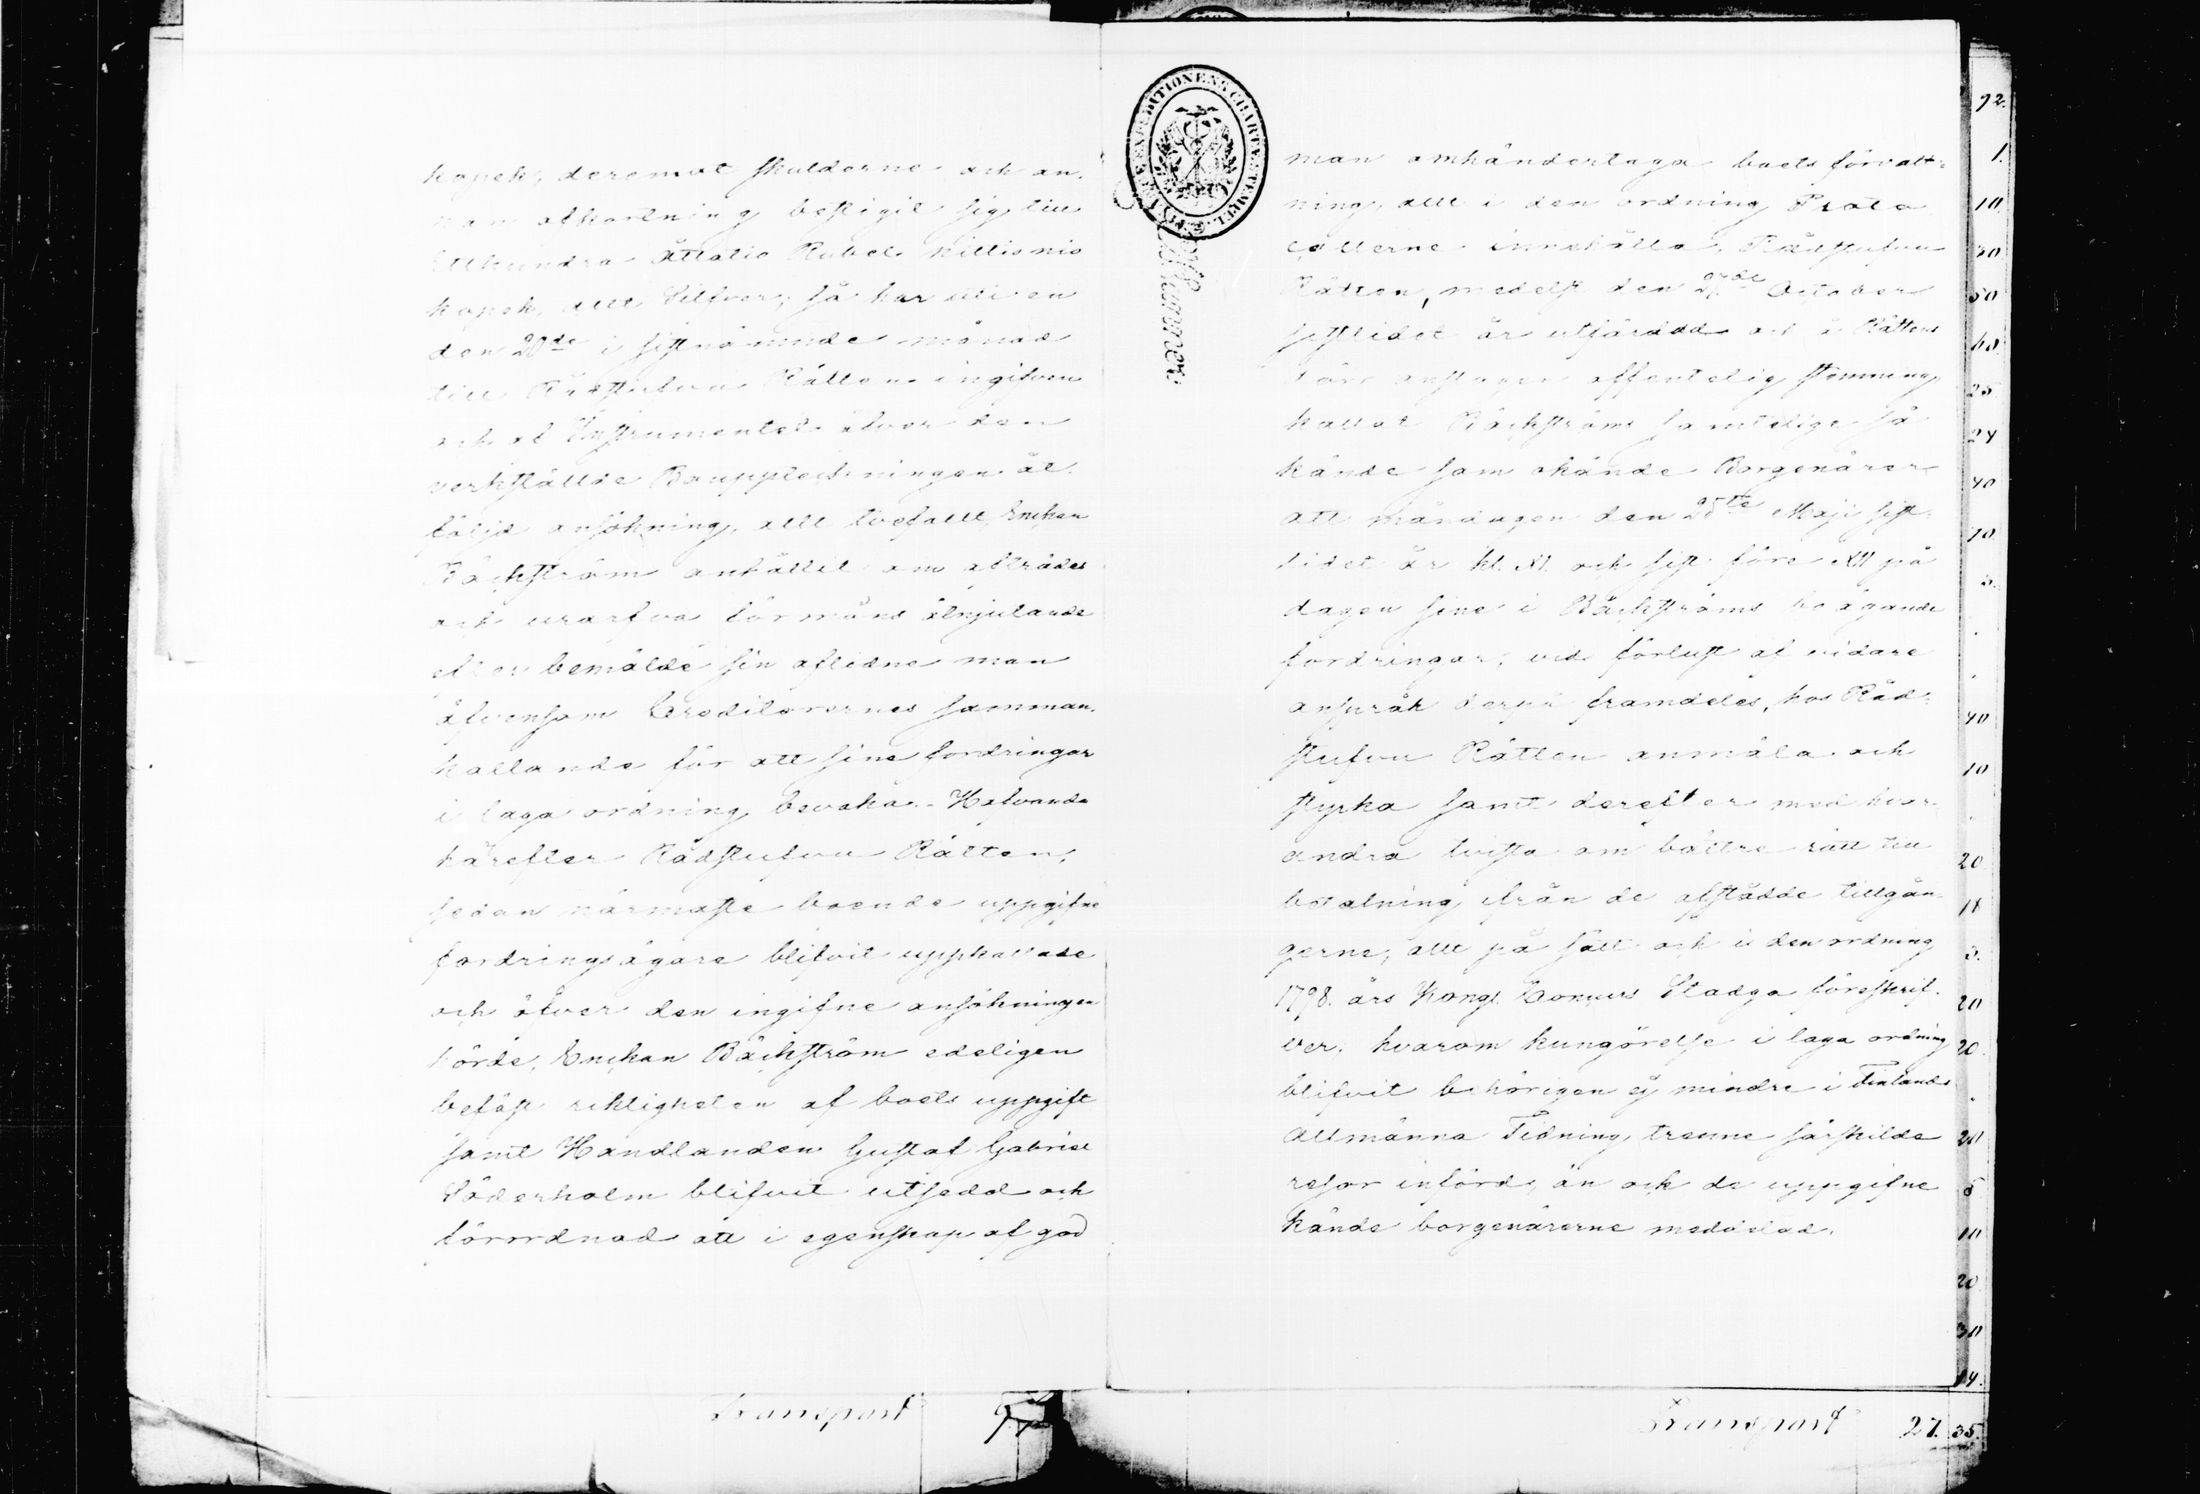 kopek, deremot skulderne och an-
nan afkortning bestigit sig till
Etthundra Åttatio Rubel Nittionio
kopek, allt Silfver; så har uti en
den 20de i sistnämnde månad
till Rådstufvu Rätten ingifven
och at Instrumentet öfver den
verkställde Bouppteckningen åt-
följd ansökning, allt tvefallt, Enkan
Bäckström anhållit om afträdes
och urarfva förmåns åtnjutande
efter bemälde sin aflidne man
äfvensom Creditorernes samman-
kallande för att sine fordringar
i laga ordning bevaka. Hafvande
härefter Rådstufvu Rätten,
sedan närmaste boende uppgifne
fordringsägare blifvit uppkallade
och öfver den ingifne ansökningen
hörde, Enkan Bäckström edeligen
befäst riktigheten af boets uppgift
samt Handlanden Gustaf Gabriel
Söderholm blifvit utsedd och
förordnad att i egenskap af god
Transport
man omhändertaga boets förvalt-
ning, allt i den ordning Proto-
collerne innehålla. Rådstufvu
Rätten, medelst den October
sistlidet år utfärdad och å Rättens
dörr anslagen offentelig stämning,
kallat Bäckströms samtelige så
kände som okände Borgenärer
att måndagen den 25te Maji sist-
lidet år kl. XI. och sist före XII på
dagen sine i Bäckströms bo ägande
fordringar, vid förlust af vidare
anspråk derpå framdeles, hos Råd-
stufvu Rätten anmäla och
styrka samt derefter med hvar-
andra tvista om bättre rätt till
betalning ifrån de afstådde tillgån-
gerne, allt på sätt och i den ordning
1798. års Kongl. Concurs Stadga föreskrif-
ver; hvarom kungörelse i laga ordning
blifvit behörigen ej mindre i Finlands
Allmänna Tidning, trenne särskilde
resor införd, än och de uppgifne
kände borgenärerne meddelad.
Transport 27. 35.
92.
1.
10
30
50
60
25
24
40
70
5.
40
10
20
18
3.
20
20
20
5
10
20
30
14.